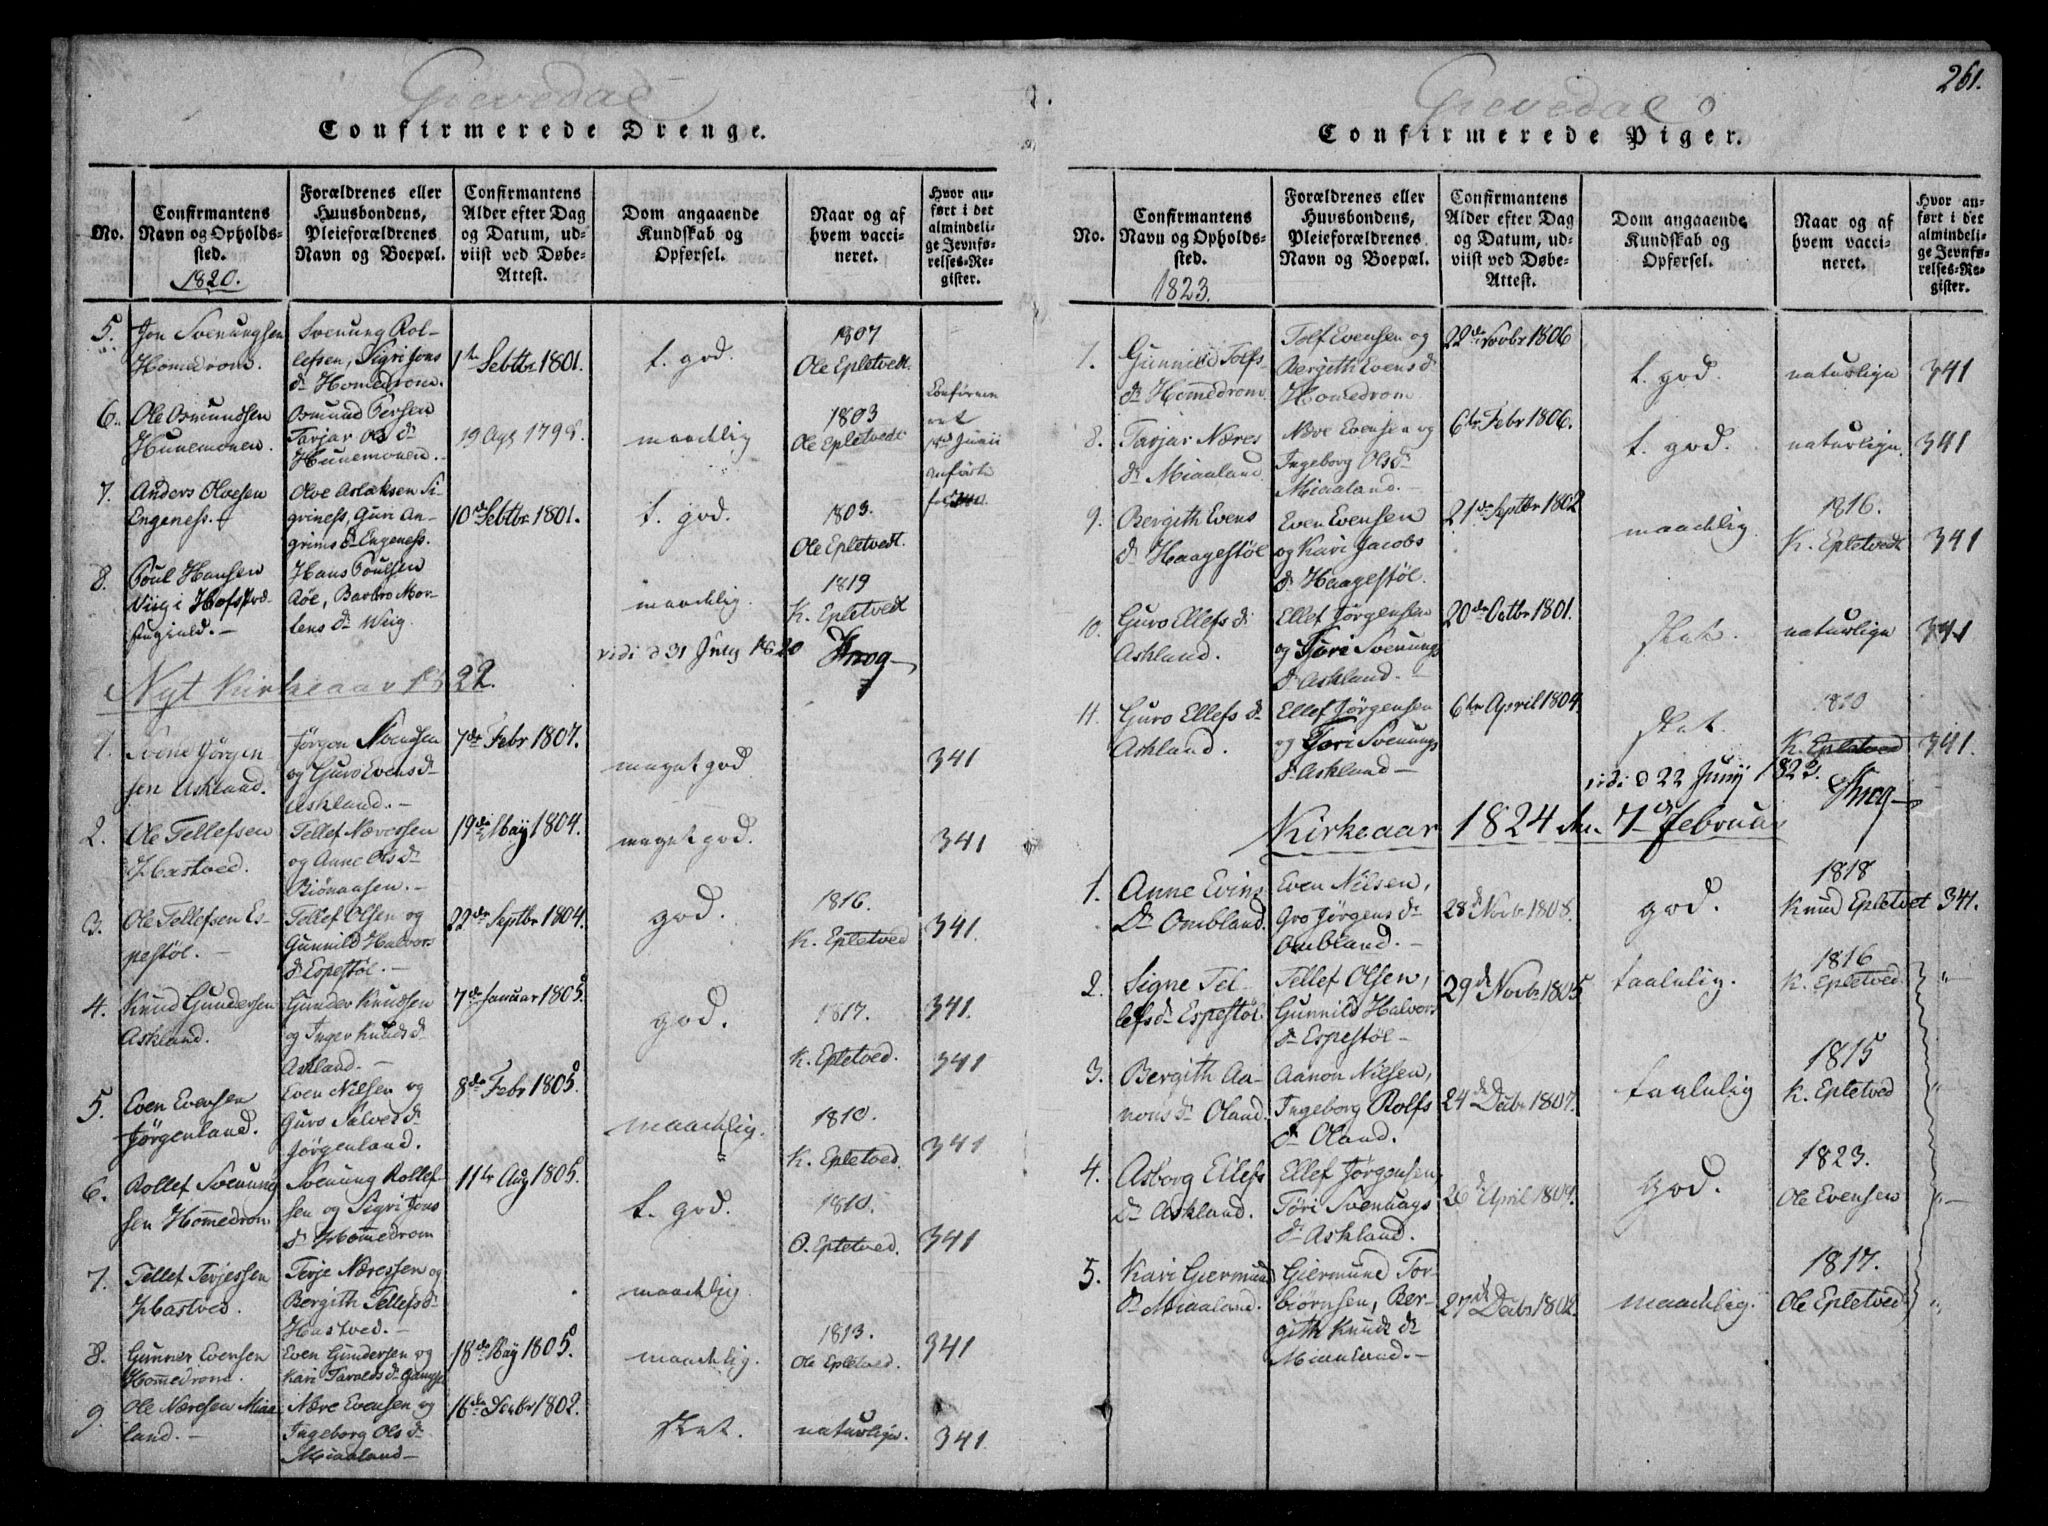 261.
Gievedal
Confirmerede Drenge.
No.
Confirmantens
Navn og Opholds-
sted.
1820.
Forældrenes eller
Huusbondens,
Pleieforældrenes
Navn og Boepæl.
Confirmantens
Alder efter Dag
og Datum, ud-
viist ved Døbe-
Attest.
Dom angaaende
Kundskab og
Opførsel.
Naar og af
hvem vacci-
neret.
Hvor an-
ført i det
almindeli-
ge Jevnfø-
relses-Re-
gister.
5.
Jon Svenungsen
Homedrom.
Svenung Rol-
lefsen, Sigri Jons
dr Homedrom.
1te Sebtbr 1801.
t. god.
1807
Ole Epletvedt.
6.
Ole Osmundsen
Hunemonen.
Osmund Persen
Tarjar Ols dr
Hunemonen.
19 Aug 1798.
maadelig
1803
Ole Epletvedt
anførte
7.
Anders Olvesen
Engeness.
Olve Aslaksen Si-
griness, Guri An-
grims dr Engeness.
10de Sebtbr 1801.
t. god.
1803.
Ole Epletvedt.
8.
Poul Hansen
Hans Poulsen
Røe, Barbro Mor-
tens dr Weig.
maadelig.
1819
K. Epletvedt
vidi d 31 July 1820
Nyt Kirkeaar 1822.
1.
Svene Jørgen
sen Askland.
Jørgen Svendsen
og Guro Evens dr
Askland.-
7de Febr 1807.
meget god
341
2.
Ole Tellefsen
Hastved.
Tellef Næressen
og Anne Ols dr
Biønaasen.-
19de May 1804.
meget god.
341
3.
Ole Tellefsen Es-
pestøl.-
Tellef Olsen og
Gunnild Halvors
dr Espestøl.-
22de Septbr 1804.
god.
1816.
K. Epletved
341.
4.
Knud Gundersen
Askland.
Gunder Knudsen
og Inger Knuds dr
Askland.-
7de Januar 1805.
god.
1817.
K. Epletved.
341.
5.
Even Evensen
Jørgenland.
Even Nilsen og
Guro Salves dr
Jørgenland.
8de Febr 1805.
maadelig.
1810.
K. Epletved.
341
6.
Rollef Svenung
sen Homedrom
Svenung Rollef-
sen og Sigri Jons
dr Homedrom
11te Aug 1805.
t. god.
1810.
O. Epletved.
341
341
7.
Tellef Terjessen
Hastved.
Terje Næressen og
Bergith Tellefs dr
Hastved.-
maadelig.
8.
Gunner Evensen
Homedrom.
Even Gundersen og
Kari Tarolds dr
18de May 1805.
maadelig.
1813.
Ole Epletved.
341
9.
Ole Næresen Miaa
land.-
Nære Evensen og
Ingeborg Ols dr
Miaaland-
16de Decbr 1802.
slet.
naturlige.
341.
Gievedal
Confirmerede Piger.
No.
Confirmantens
Navn og Opholds-
sted.
1823.
Forældrenes eller
Huusbondens,
Pleieforældrenes
Navn og Boepæl.
Confirmantens
Alder efter Dag
og Datum, ud-
viist ved Døbe-
Attest.
Dom angaaende
Kundskab og
Opførsel.
Naar og af
hvem vacci-
neret.
Hvor an-
ført i det
almindeli-
ge Jevnfø-
relses-Re-
gister.
7.
Gunnild Tolfs-
dr Homedrom
Tolf Evensen og
Bergith Evens dr
Homedrom
22de Novbr 1806
t. god.
naturlige
341
8.
Tarjar Næres
dr Miaaland
Nære Evensen og
Ingeborg Ols dr
Miaaland.-
6te Febr 1806.
t. god.
naturlige.
341
9.
Bergith Evens
dr Haagestøl
Even Evensen
og Kari Jacobs
dr Haagestøl.
21de Septbr 1802
maadelig.
1816.
K. Epletvedt
341
10.
Guro Ellefs dr
Askland.
Ellef Jørgensen
og Tøri Svenungs
dr Askland.-
20de Octbr 1801.
slet.
naturlige
341
11.
Guro Ellefs dr
Askland.
Ellef Jørgensen
og Tøri Svenungs
dr Askland-
6te April 1804.
slet.
1810
K. Epletved
341.
vidi d 22 Juny 1823.
Kirkeaar 1824 den 7de Februar
1.
Anne Evins
Dr Ombland.
Even Nilsen,
Gro Jørgens dr
Ombland.-
28de Novbr 1808.
god.
1818
Knud Epletvet
341.
2.
Signe Tel-
lefs dr Espestøl.
Tellef Olsen,
Gunnild Halvors
dr Espestøl-
29de Novbr 1805
taalelig.
1816
K. Epletved
"-
3.
Bergith Aa-
nons dr Oland.
Aanon Nilsen,
Ingeborg Rolfs
dr Oland.
24de Decbr 1807.
taalelig
1815
K. Epletved
"
4.
Asborg Ellefs
Dr Askland.
Ellef Jørgensen,
Tøri Svenungs
dr Askland.
26de April 1809.
god.
1823.
Ole Evensen
"-
5.
Kari Giermund
Dr Miaaland.
Giermund Tor-
biørnsen, Ber-
gith Knuds dr
Miaaland.-
27de Decbr 1802.
maadelig.
1817.
Ole Epletved
"